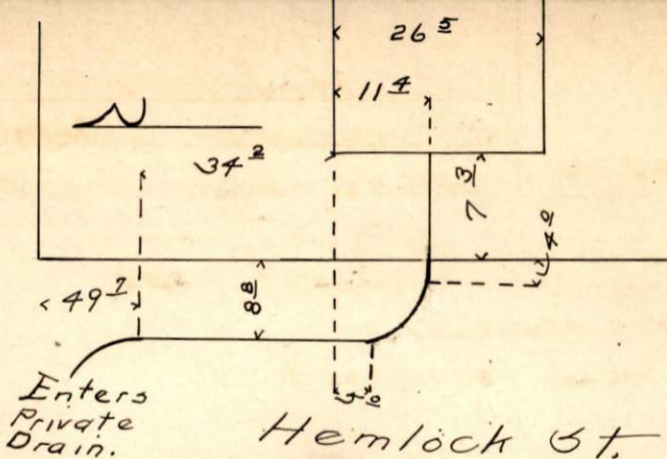 26 5
11 4
34 2
7 3
4 0
49 7
8 8
5 0
Enters
Private
Drain.
Hemlock St.